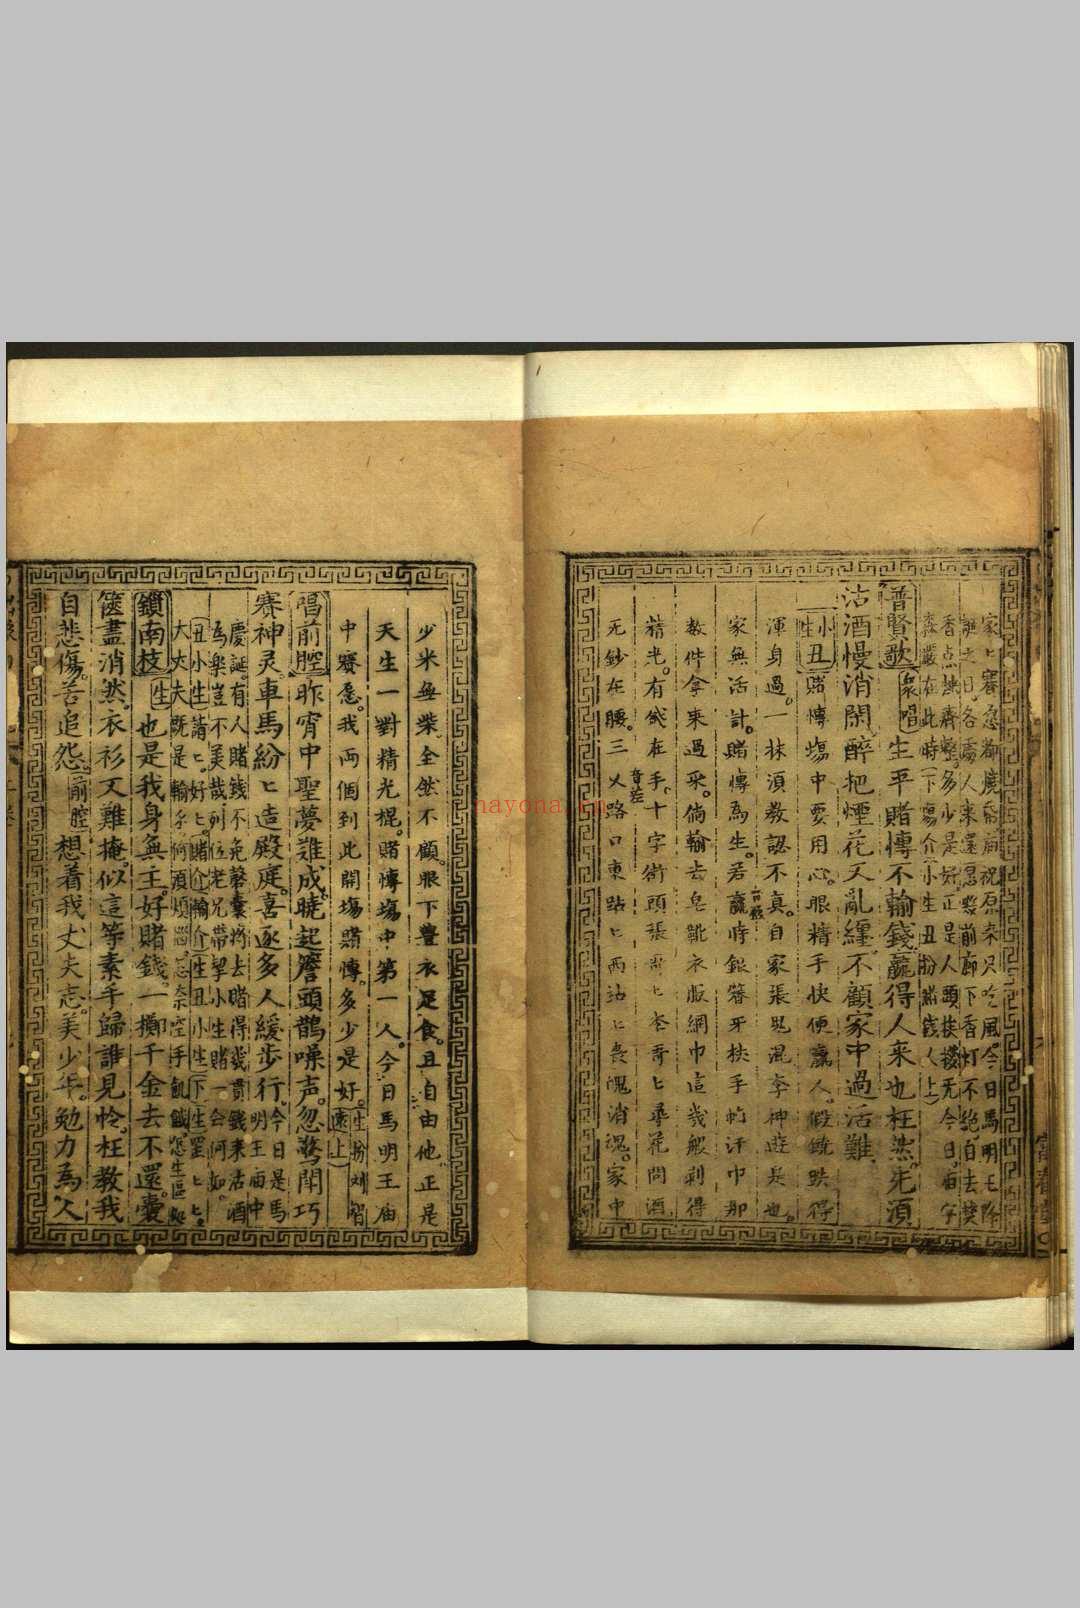 家匕賽
誕之日各處人來還愿殿前廊下香灯不絶白去獎
香点燭齊整多少是好正是人頭挨攢无今日庙宇
森嚴在此時下塲介小生丑扮賭錢人上
普賢歌 衆唱 生平賭慱不輸錢贏得人來也枉然先湏
沽酒慢消閑醉把煙花又亂纏不顧家中過活難
小生 丑 賭慱塲中要用心眼精手快便贏人假鈗跌得
渾身過一抹湏教認不真自家張 混李神遊是也
家無活計賭慱為生若贏時銀簪牙梳手帕汗巾那
数件拿來過采倘輸去皂靴衣服網巾這幾般剥得
精光有錢在手十字街頭張哥匕李哥匕尋花問酒
无鈔在腰三乂路口東跕匕西跕匕喪魄消魂家中
少米無柴全然不顧眼下豊衣足食且自由他正是
天生一對精光棍賭慱塲中第一人今日馬明王庙
中賽愿我両個到此開塲賭慱多少是好 生扮刘智遠上
唱前腔 昨宵中聖夢難成曉起簷頭鵲噪声忽驚閙巧
賽神灵車馬紛匕造殿庭喜逐多人緩步行 今日是馬
明王庙中
慶誕有人賭錢不免罄囊将去賭得幾貫錢來沽酒
為樂豈不美哉列位老兄帶挈小生賭一会何如
丑小生請匕好匕賭介輸介生丑小生下生罢匕匕
大丈夫既是輸了何湏煩惱 奈空手飢餓怎生區処
鎖南枝 生 也是我身無主好賭錢一擲千金去不還囊
篋盡消然衣衫又難掩似這等素手歸誰見怜枉教我
自悲傷苦追怨 前腔 想着我丈夫志美少年勉力為人
nayona.cn